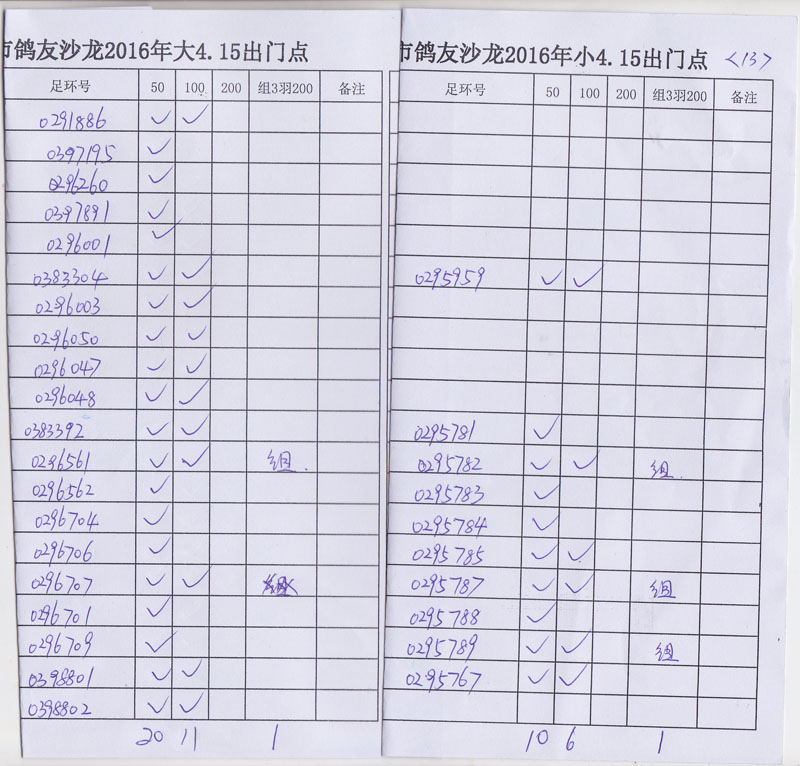 市鸽友沙龙2016年大4.15出门点
足环号 50 100 200 组3羽200 备注
0291886 ✓ ✓
0397195 ✓
0296260 ✓
0397891 ✓
0296001 ✓
0383304 ✓ ✓
0296003 ✓ ✓
0296050 ✓ ✓
0296047 ✓ ✓
0296048 ✓ ✓
0383392 ✓ ✓
0296561 ✓ ✓ 组
0296562 ✓
0296704 ✓
0296706 ✓
0296707 ✓ ✓
0296701 ✓
0296709 ✓
0398801 ✓ ✓
0398802 ✓ ✓
20 11 1
市鸽友沙龙2016年小4.15出门点 <13>
足环号 50 100 200 组3羽200 备注
0295959 ✓ ✓
0295781 ✓
0295782 ✓ ✓ 组
0295783 ✓
0295784 ✓
0295785 ✓ ✓
0295787 ✓ ✓ 组
0295788 ✓
0295789 ✓ ✓ 组
0295767 ✓ ✓
10 6 1